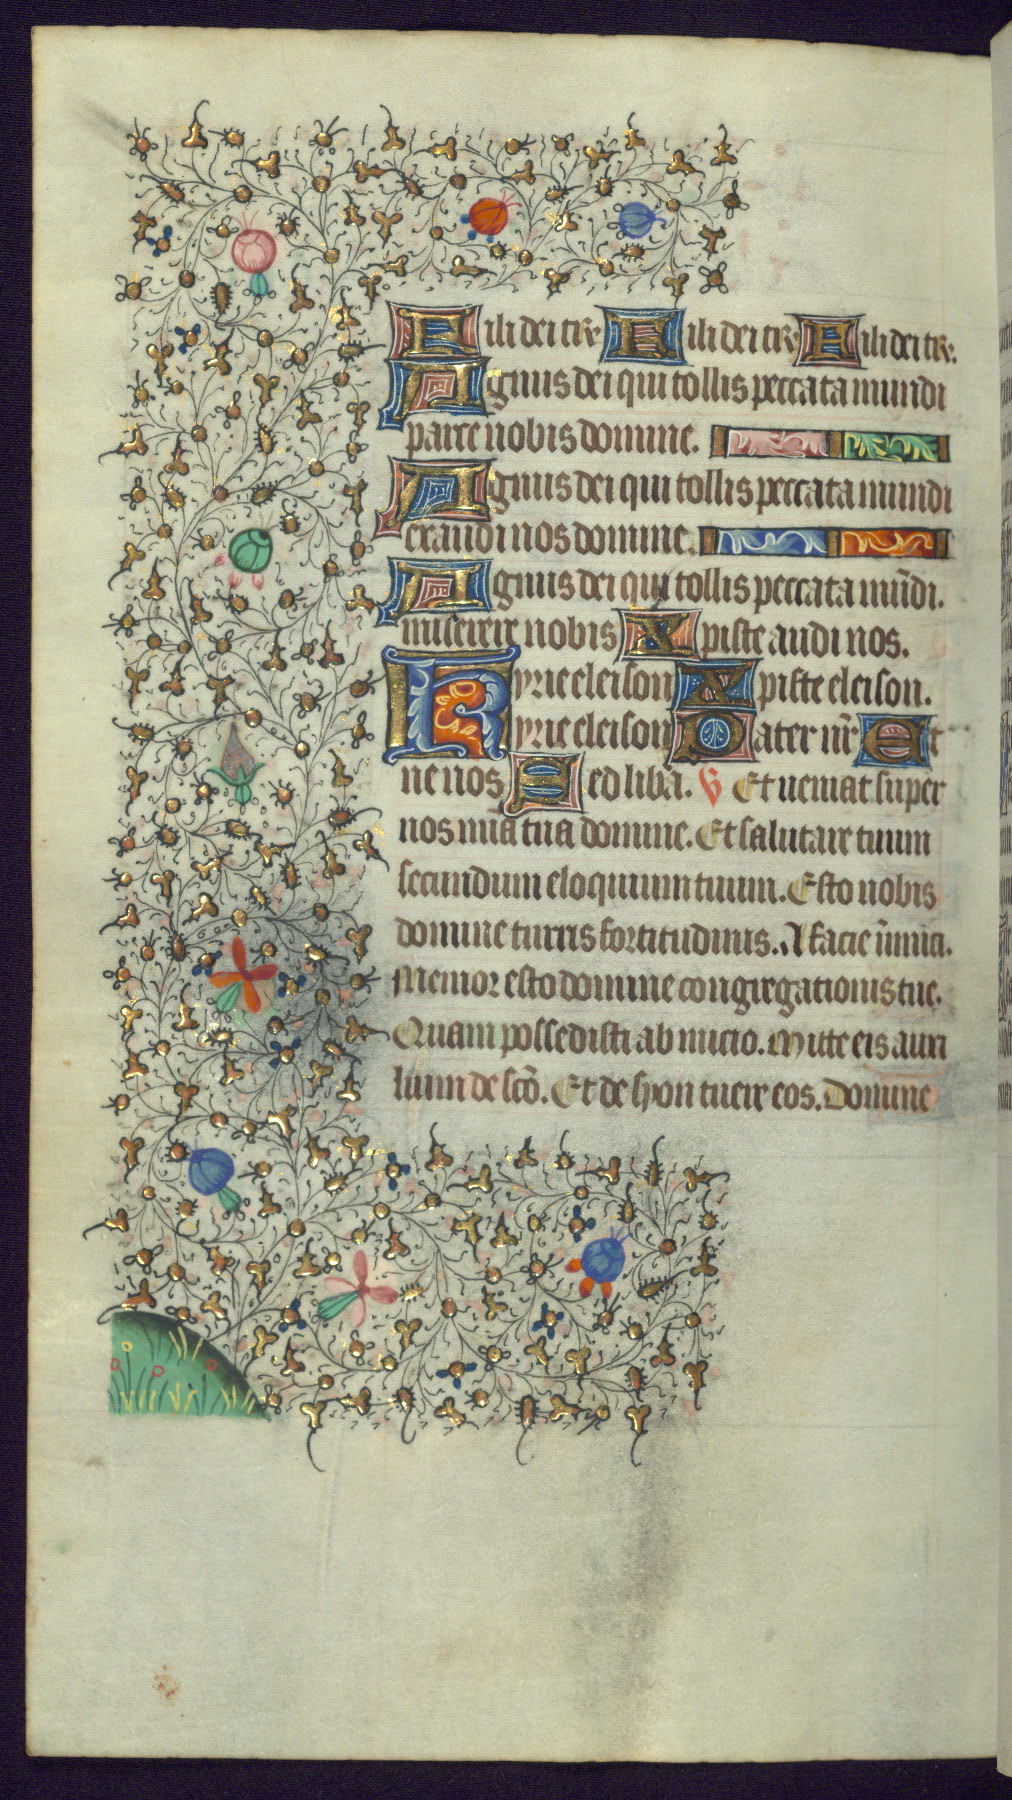 Fili dei te r̄. Fili dei te r̄. Fili dei te r̄.
Agnus dei qui tollis peccata mundi
parce nobis domine.
Agnus dei qui tollis peccata mundi
exaudi nos domine.
Agnus dei qui tollis peccata mūdi.
miserere nobis Xpiste audi nos.
Kyrie eleison Xpiste eleison.
Kyrie eleison Pater nr̄ Et
ne nos Sed liba. V Et ueniat super
nos mīa tua domine. Et salutare tuum
secundum eloquium tuum. Esto nobis
domine turris fortitudinis. A facie inimici.
Memor esto domine congregationis tue.
Quam possedisti ab inicio. Mitte eis auxi
lium de scō. Et de syon tuere eos. Domine